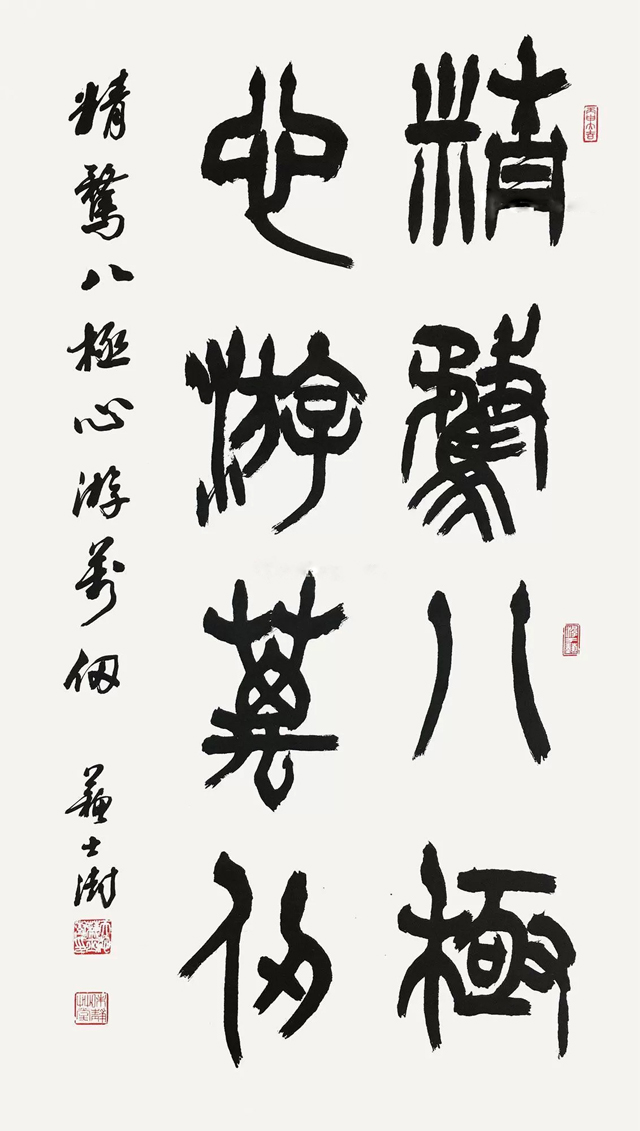 精騖八極
心游萬仞
精騖八極心游萬仞
蘇士澍